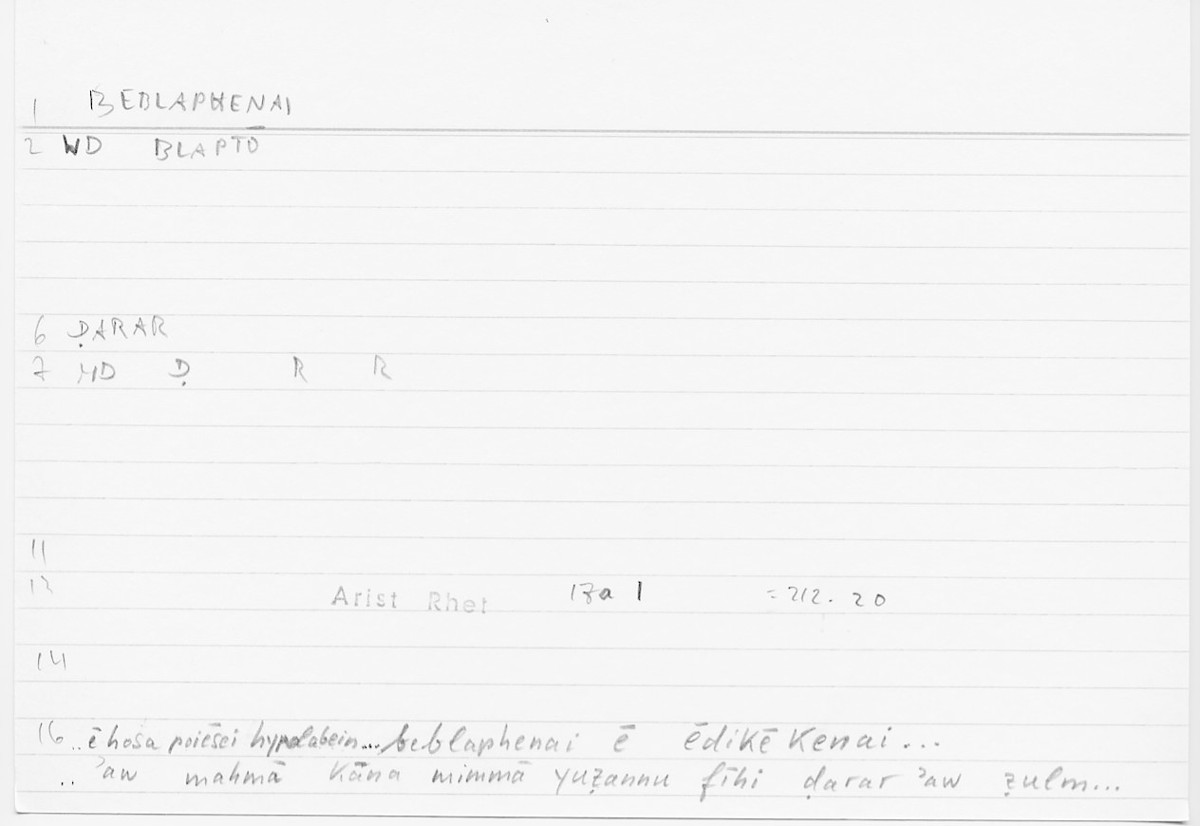 1 BEBLAPHENAI
2 WD BLAPTŌ
6 ḌARAR
7 MD Ḍ R R
11
12 Arist Rhet 17a 1 = 212. 20
14
16 .. ē hosa poiēsei hypolabein... beblaphenai ē ēdikēkenai...
.. ʾaw mahmā kāna mimmā yuẓannu fīhi ḍarar ʾaw ẓulm...